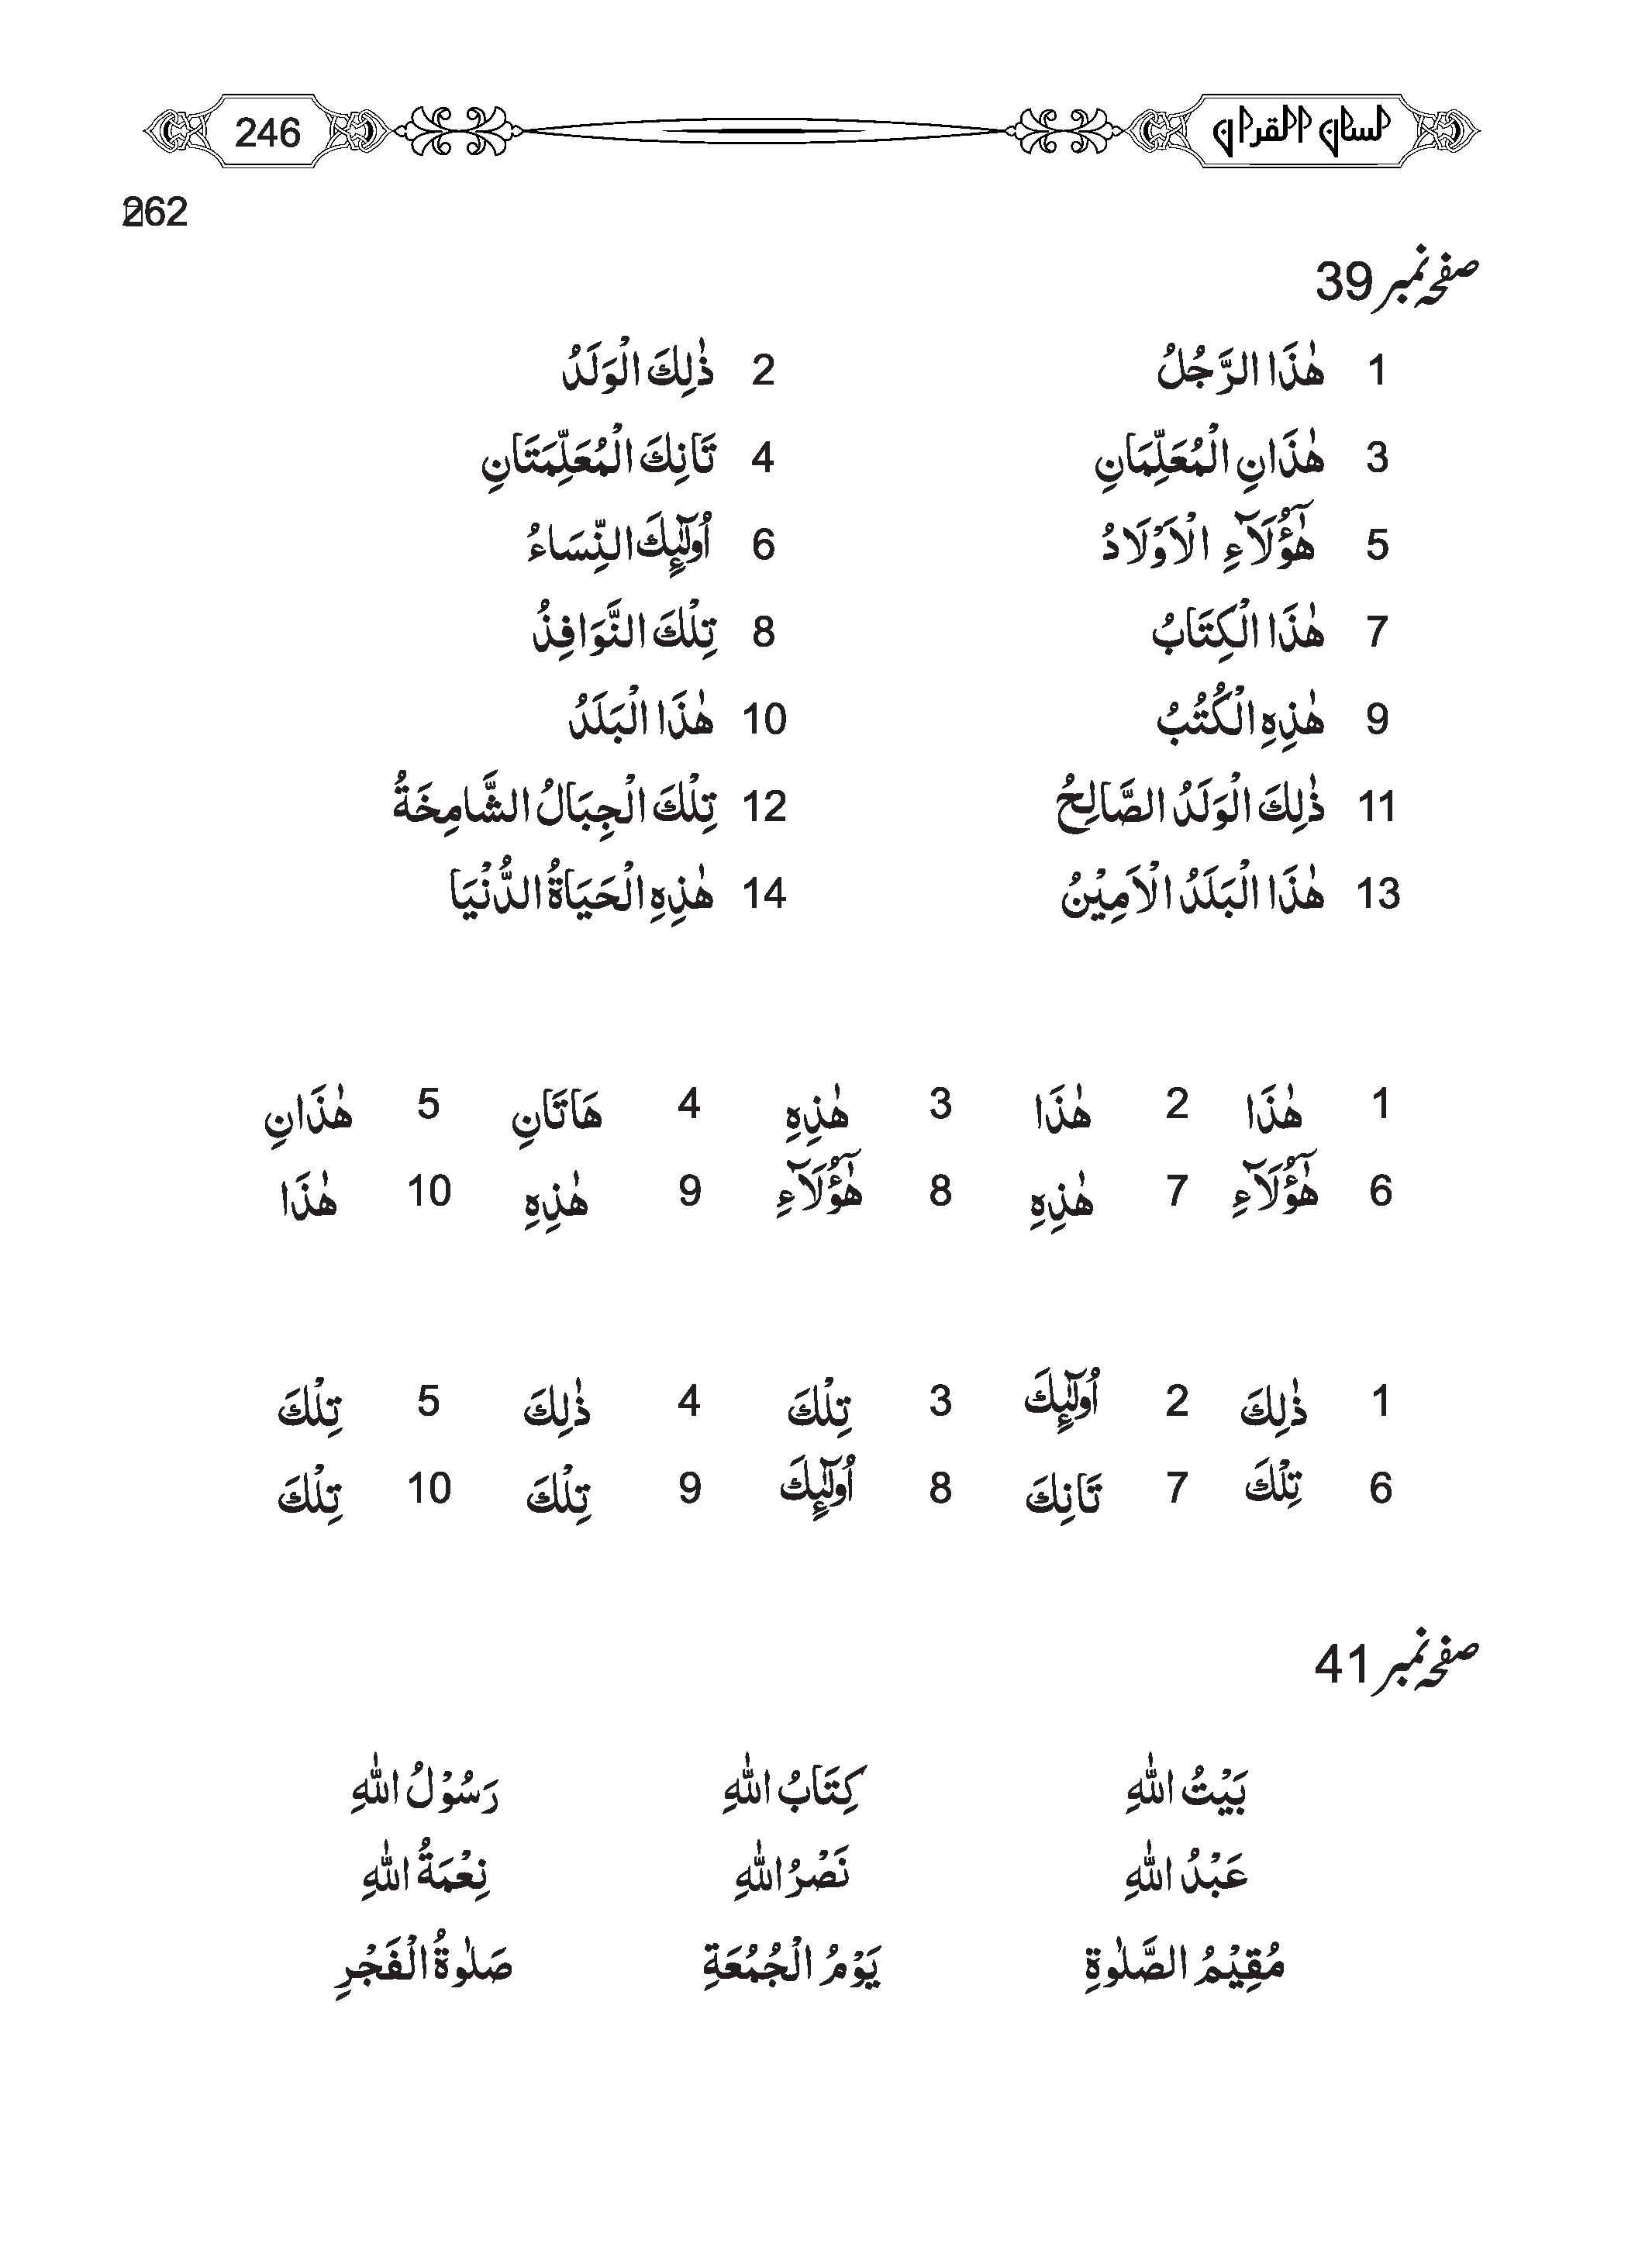 لسان القرآن 246
262
صفحہ نمبر 39
1 هٰذَا الرَّجُلُ 2 ذٰلِكَ الْوَلَدُ
3 هٰذَانِ الْمُعَلِّمَانِ 4 تَانِكَ الْمُعَلِّمَتَانِ
5 هٰٓؤُلَآءِ الْاَوْلَادُ 6 اُولٰٓئِكَ النِّسَاءُ
7 هٰذَا الْكِتَابُ 8 تِلْكَ النَّوَافِذُ
9 هٰذِهِ الْكُتُبُ 10 هٰذَا الْبَلَدُ
11 ذٰلِكَ الْوَلَدُ الصَّالِحُ 12 تِلْكَ الْجِبَالُ الشَّامِخَةُ
13 هٰذَا الْبَلَدُ الْاَمِيْنُ 14 هٰذِهِ الْحَيَاةُ الدُّنْيَا
1 هٰذَا 2 هٰذَا 3 هٰذِهِ 4 هَاتَانِ 5 هٰذَانِ
6 هٰٓؤُلَآءِ 7 هٰذِهِ 8 هٰٓؤُلَآءِ 9 هٰذِهِ 10 هٰذَا
1 ذٰلِكَ 2 اُولٰٓئِكَ 3 تِلْكَ 4 ذٰلِكَ 5 تِلْكَ
6 تِلْكَ 7 تَانِكَ 8 اُولٰٓئِكَ 9 تِلْكَ 10 تِلْكَ
صفحہ نمبر 41
بَيْتُ اللّٰهِ كِتَابُ اللّٰهِ رَسُوْلُ اللّٰهِ
عَبْدُ اللّٰهِ نَصْرُ اللّٰهِ نِعْمَةُ اللّٰهِ
مُقِيْمُ الصَّلٰوةِ يَوْمُ الْجُمُعَةِ صَلٰوةُ الْفَجْرِ